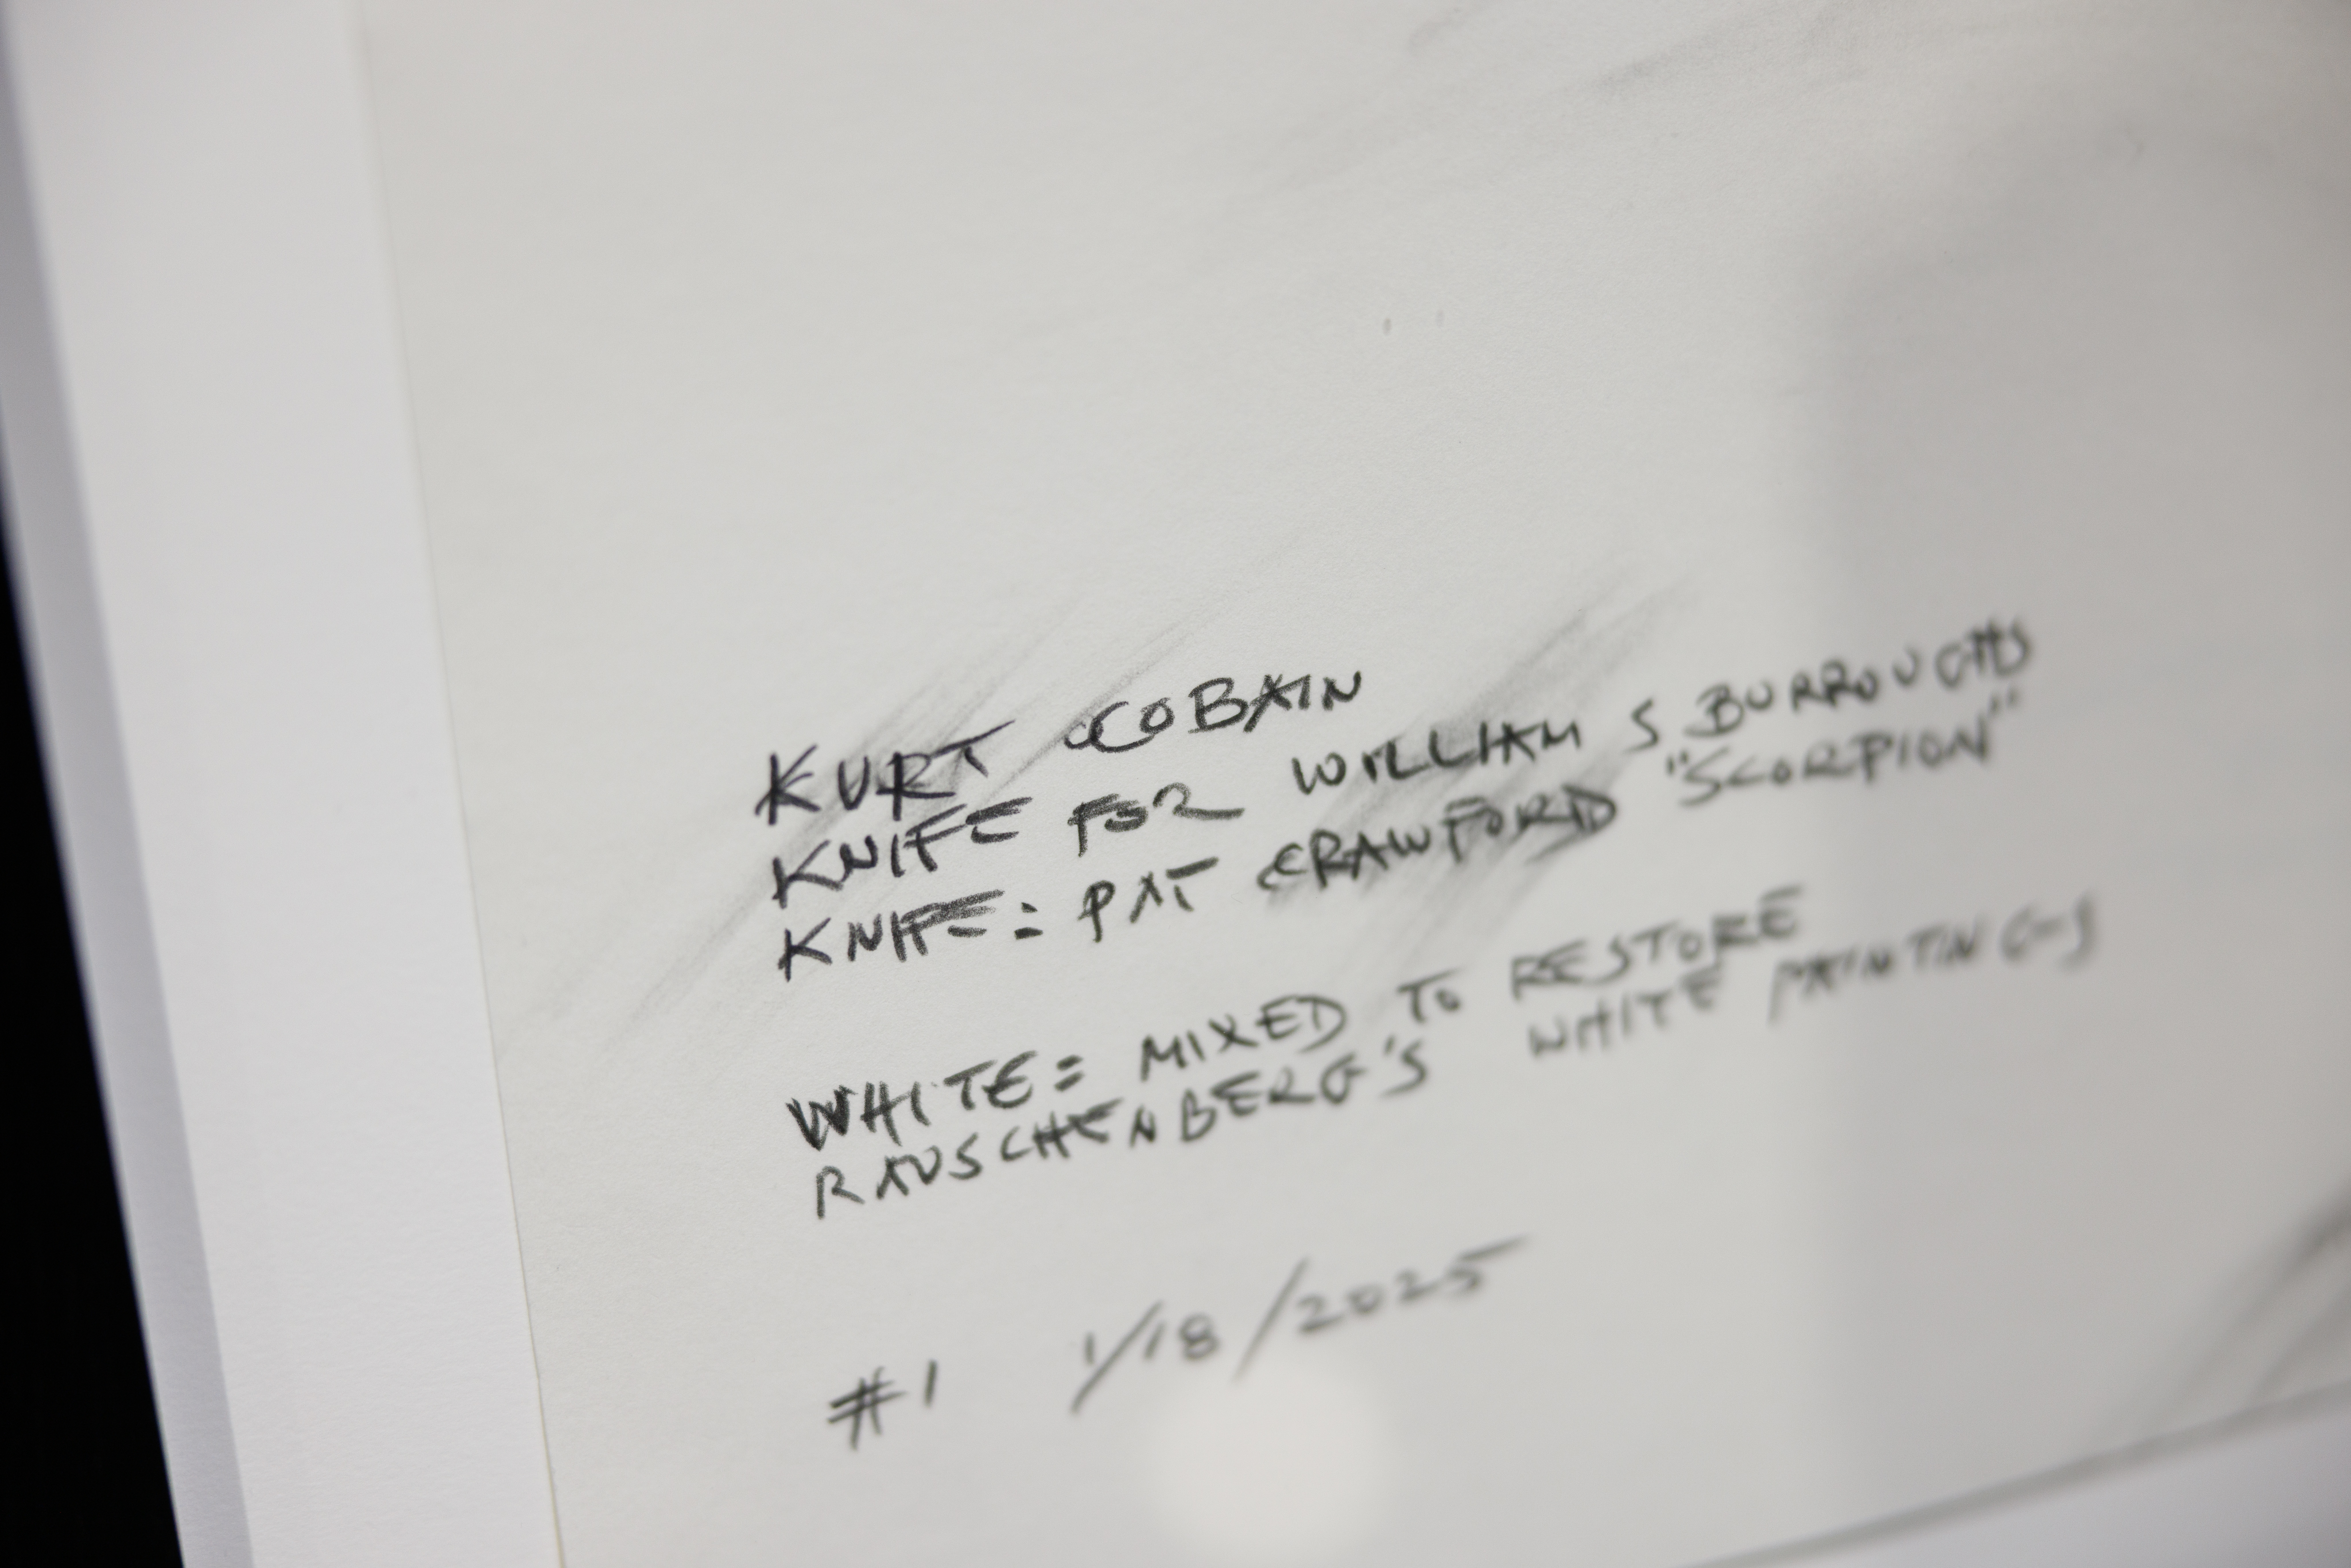 KURT COBAIN
KNIFE FOR WILLIAM S BURROUGHS
KNIFE: PAT CRAWFORD "SCORPION"
WHITE: MIXED TO RESTORE
RAUSCHENBERG'S WHITE PAINTINGS
#1 1/18/2025